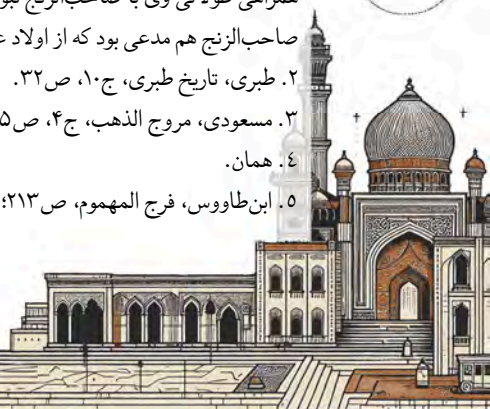 همراهی طولانی وی با صاحب‌الزنج نبو
صاحب‌الزنج هم مدعی بود که از اولاد ع
۲. طبری، تاریخ طبری، ج۱۰، ص۳۲.
۳. مسعودی، مروج الذهب، ج۴، ص۵
٤. همان.
٥. ابن‌طاووس، فرج المهموم، ص۲۱۳؛